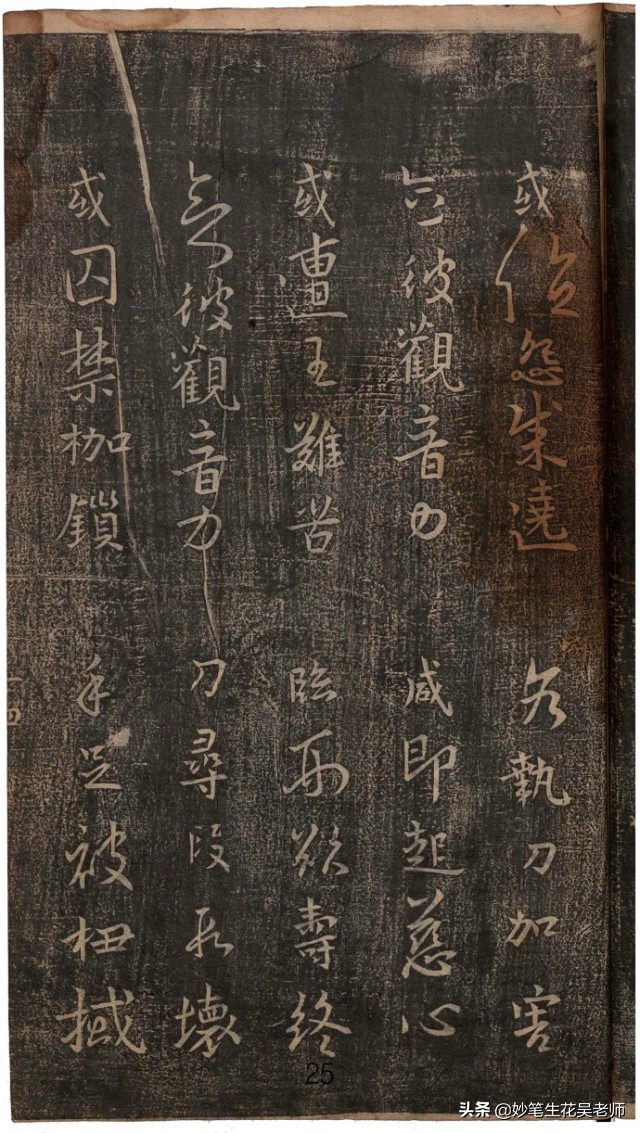 或值怨賊遶 各執刀加害
念彼觀音力 咸即起慈心
或遭王難苦 臨刑欲壽終
念彼觀音力 刀尋段段壞
或囚禁枷鎖 手足被杻械
25
头条 @妙笔生花吴老师